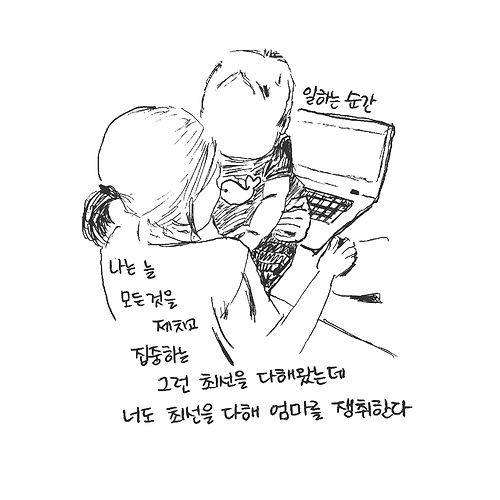 일하는 순간
나는 늘
모든것을
제치고
집중하는
그런 최선을 다해왔는데
너도 최선을 다해 엄마를 쟁취한다